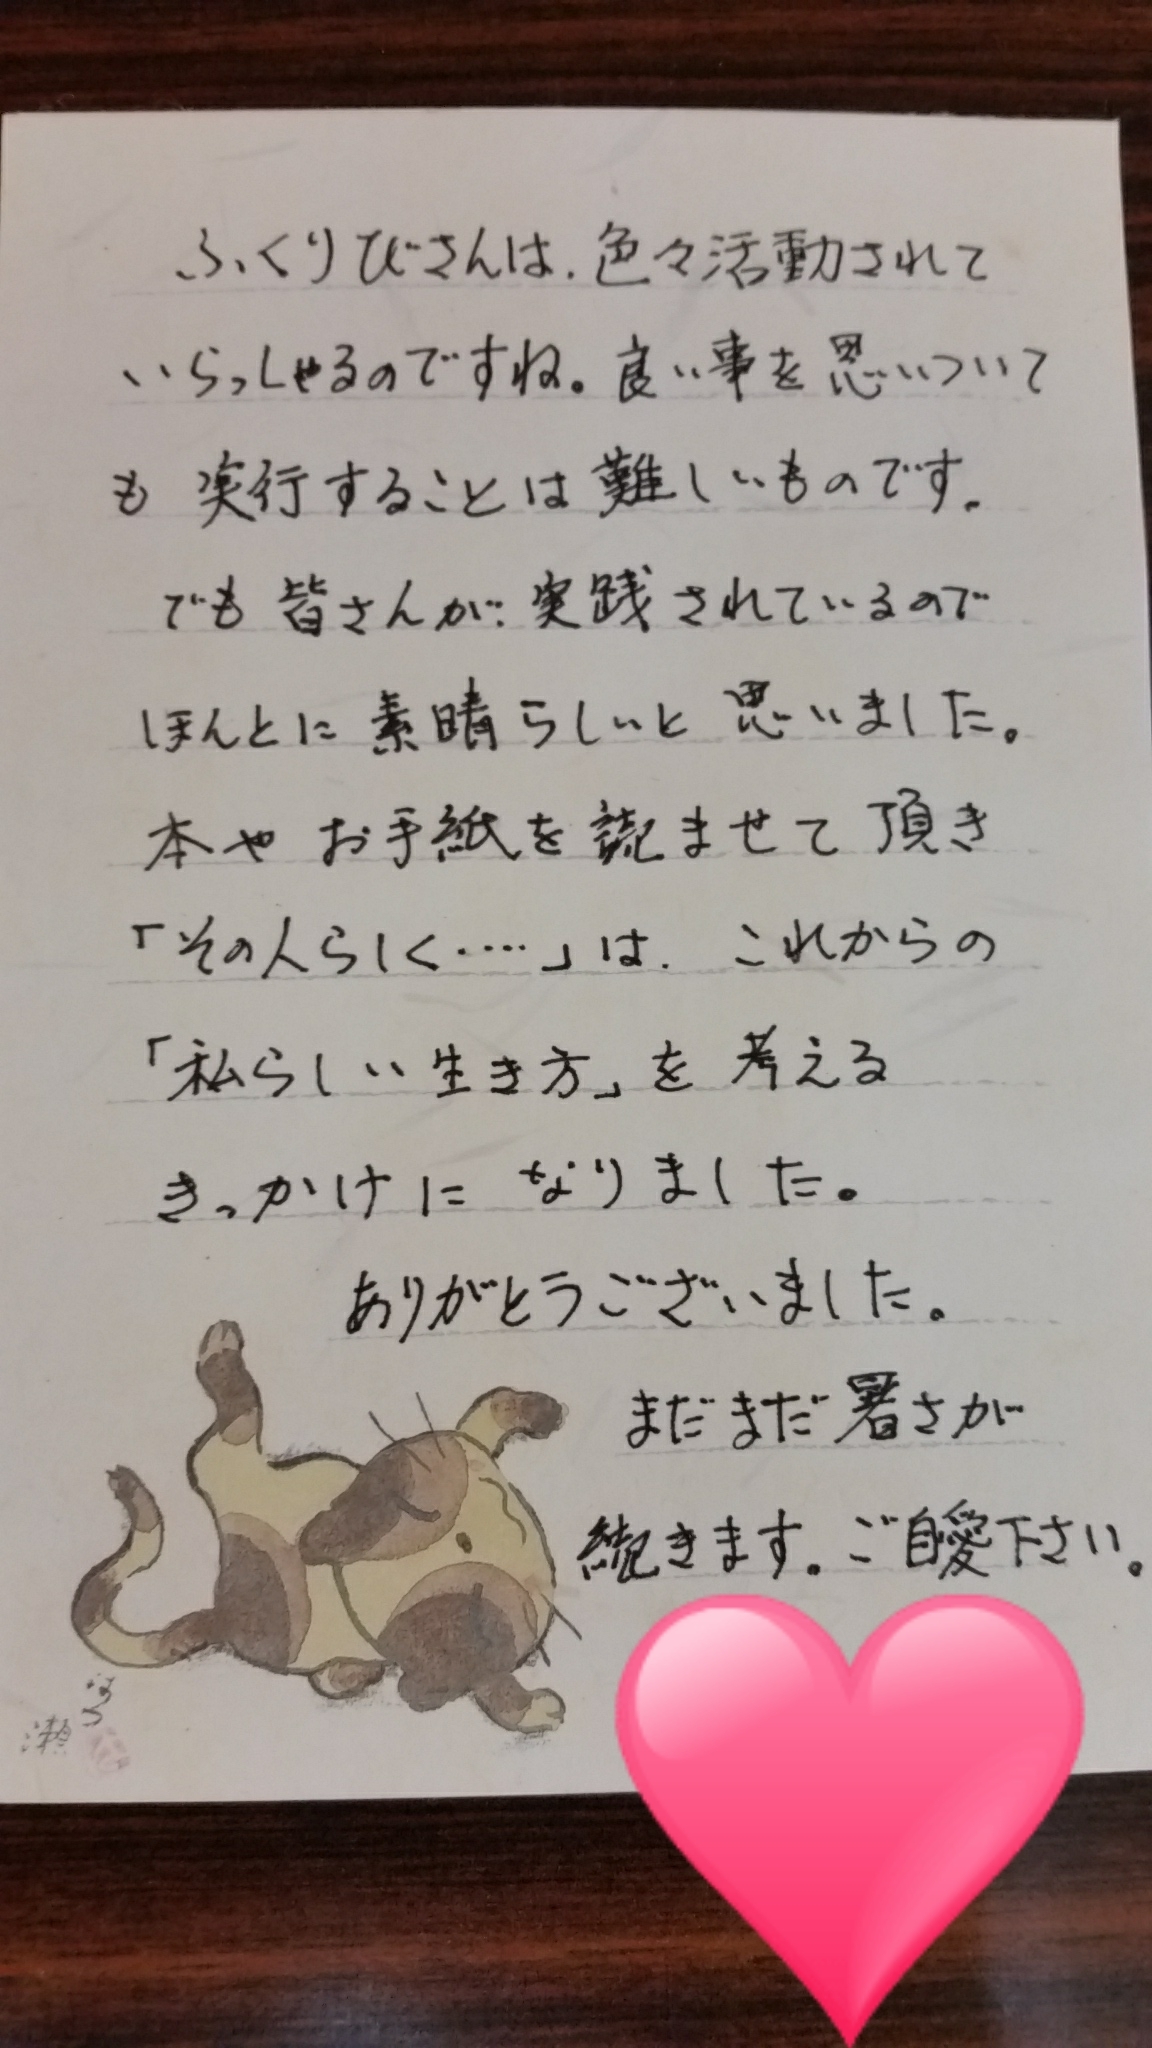 ふくりびさんは、色々活動されて
いらっしゃるのですね。良い事を思いついて
も実行することは難しいものです。
でも皆さんが、実践されているので
ほんとに素晴らしいと思いました。
本やお手紙を読ませて頂き
「その人らしく‥‥」は、これからの
「私らしい生き方」を考える
きっかけになりました。
ありがとうございました。
まだまだ暑さが
続きます。ご自愛下さい。